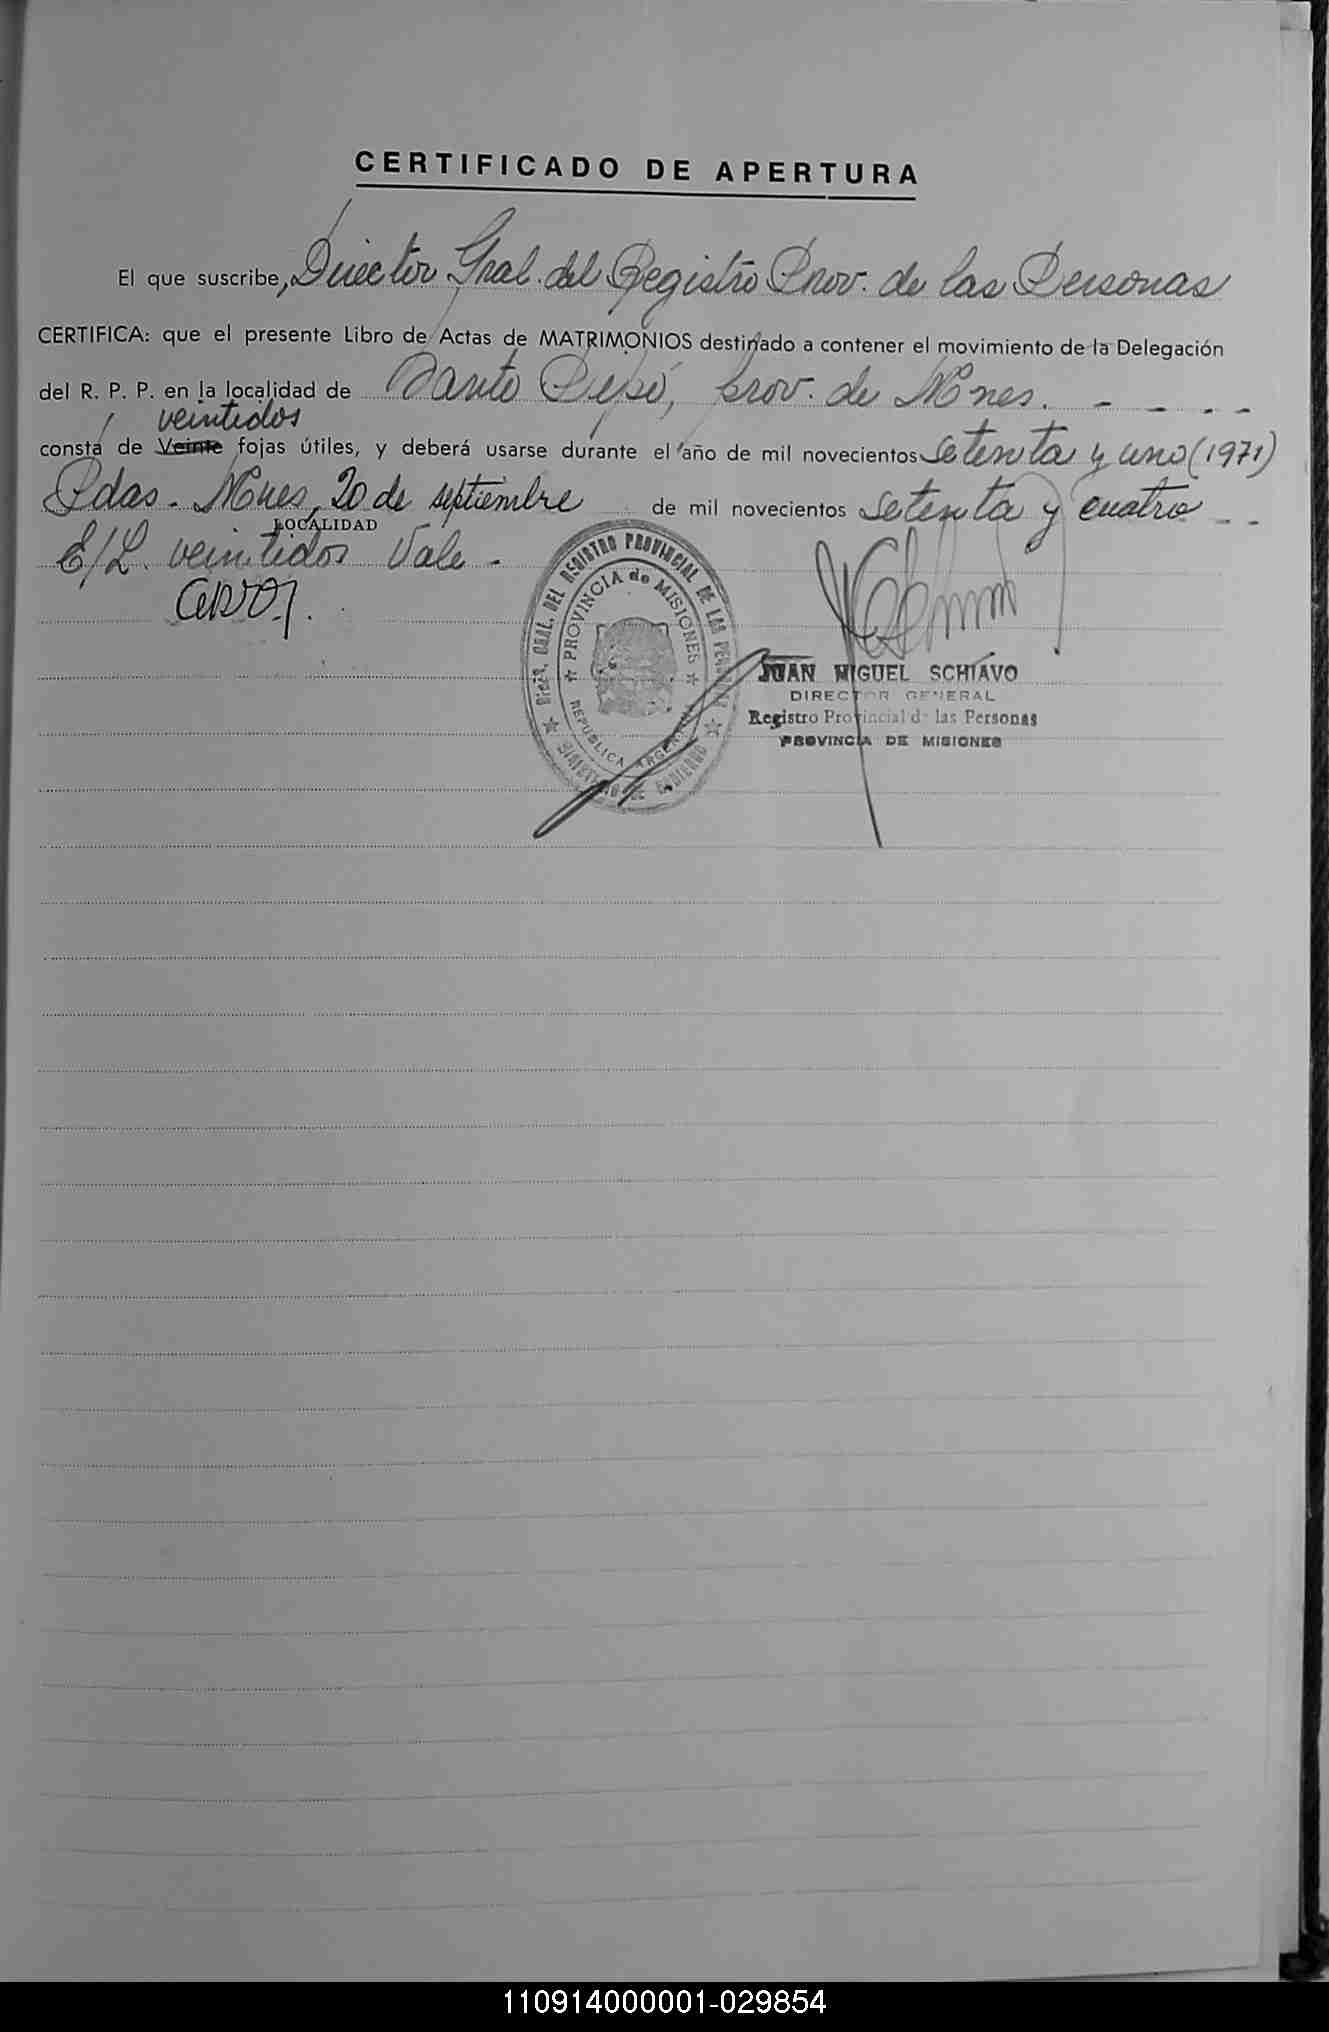 CERTIFICADO DE APERTURA
El que suscribe, Director Gral. del Registro Prov. de las Personas
CERTIFICA: que el presente Libro de Actas de MATRIMONIOS destinado a contener el movimiento de la Delegación
del R. P. P. en la localidad de Santo Pipó, prov. de Mnes. - - - -
veintidos
consta de Veinte fojas útiles, y deberá usarse durante el año de mil novecientos setenta y uno (1971)
Pdas. Mnes, 20 de septiembre de mil novecientos setenta y cuatro - -
LOCALIDAD
E/L. veintidos Vale -
DIREC. GRAL. DEL REGISTRO PROVINCIAL DE LAS PERSONAS
PROVINCIA de MISIONES
REPUBLICA ARGENTINA
MINISTERIO DE GOBIERNO
JUAN MIGUEL SCHIAVO
DIRECTOR GENERAL
Registro Provincial de las Personas
PROVINCIA DE MISIONES
110914000001-029854